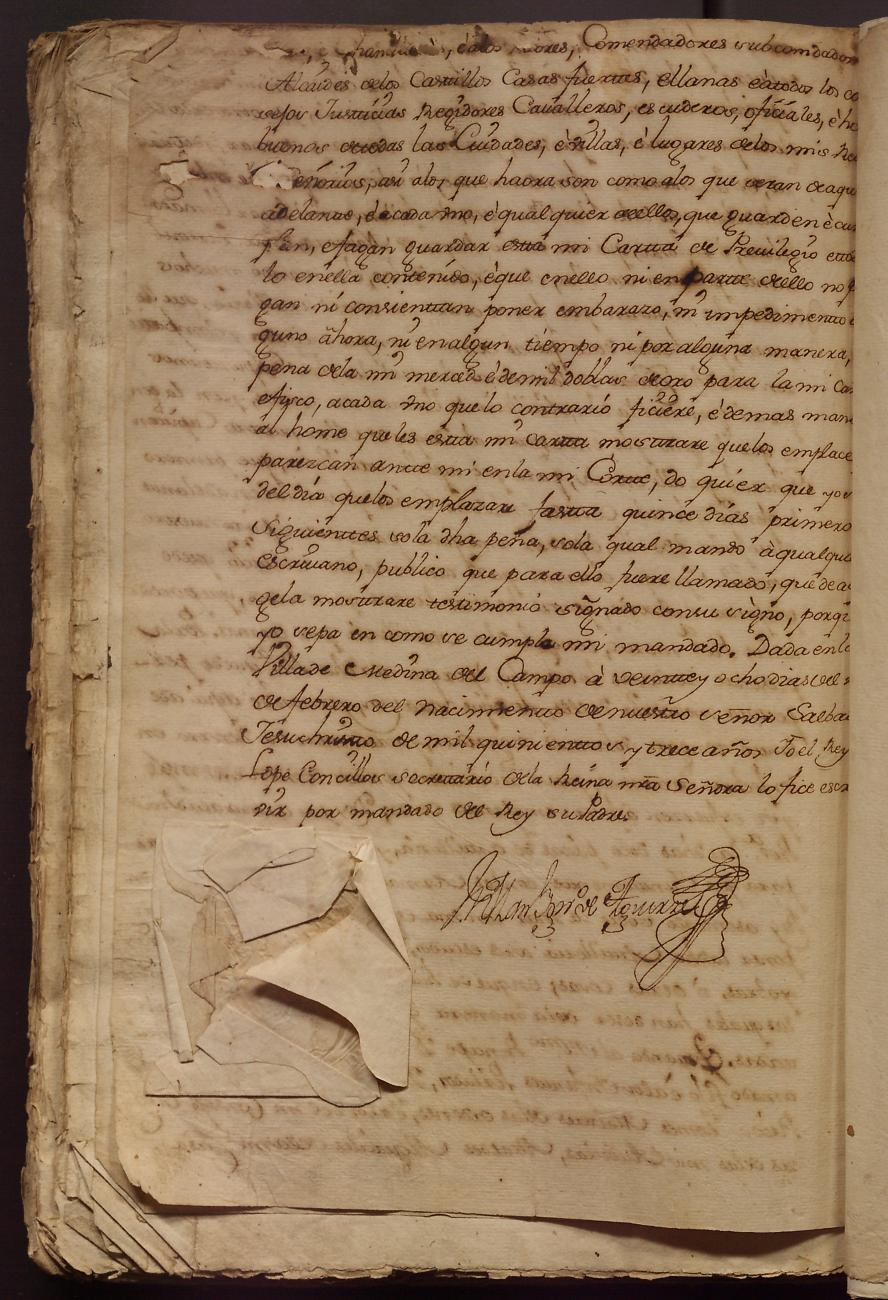 é Chanci, é alos Comendadores subcomdador
Alcaides delos Castillos Casas fuertes, ellanas eàtodos los co
sejos Justicias Regidores Cavalleros, escuderos, ofiçiales, è ho
buenos detodas las Ciudades, é villas, é lugares delos mis Re
señorios, asi alos que haora son como alos que seran deaqui
adelante, é acada vno, é qualquier dellos, que guarden è cun
plan, efagan guardar esta mi Cartta de Previlegio etto
lo enella contenido, èque enello ni en partte dello no p
gan ni consienttan poner embarazo, ni impedimentto
guno àhora, ni en algun tiempo ni por alguna manera,
pena dela mi merced é de mil doblas de oro para la mi Ca
efisco, acada vno que lo contrario ficiere, é demas man
al home que les estta mi cartta mosttrare quelos emplace
parezcan antte mi enla mi Cortte, do quier que yo
del dia quelos emplazare fastta quince dias primero
siguienttes so la dha pena, sola qual mando à qualqui
escrivano, publico que para ello fuere llamado, que de a
gela mosttrare testimonio signado consu signo, porqu
yo sepa en como se cumple mi mandado. Dada enla
Villa de Medina del Campo à veintte y ocho dias del
de febrero del nacimientto de nuestro señor Salba
Jesuchristto de mil quinienttos y trece años Yo el Rey
Lope Concillos secrettario dela Reina nra Señora lo fice escr
vir por mandado del Rey su Padre
de Aguirre